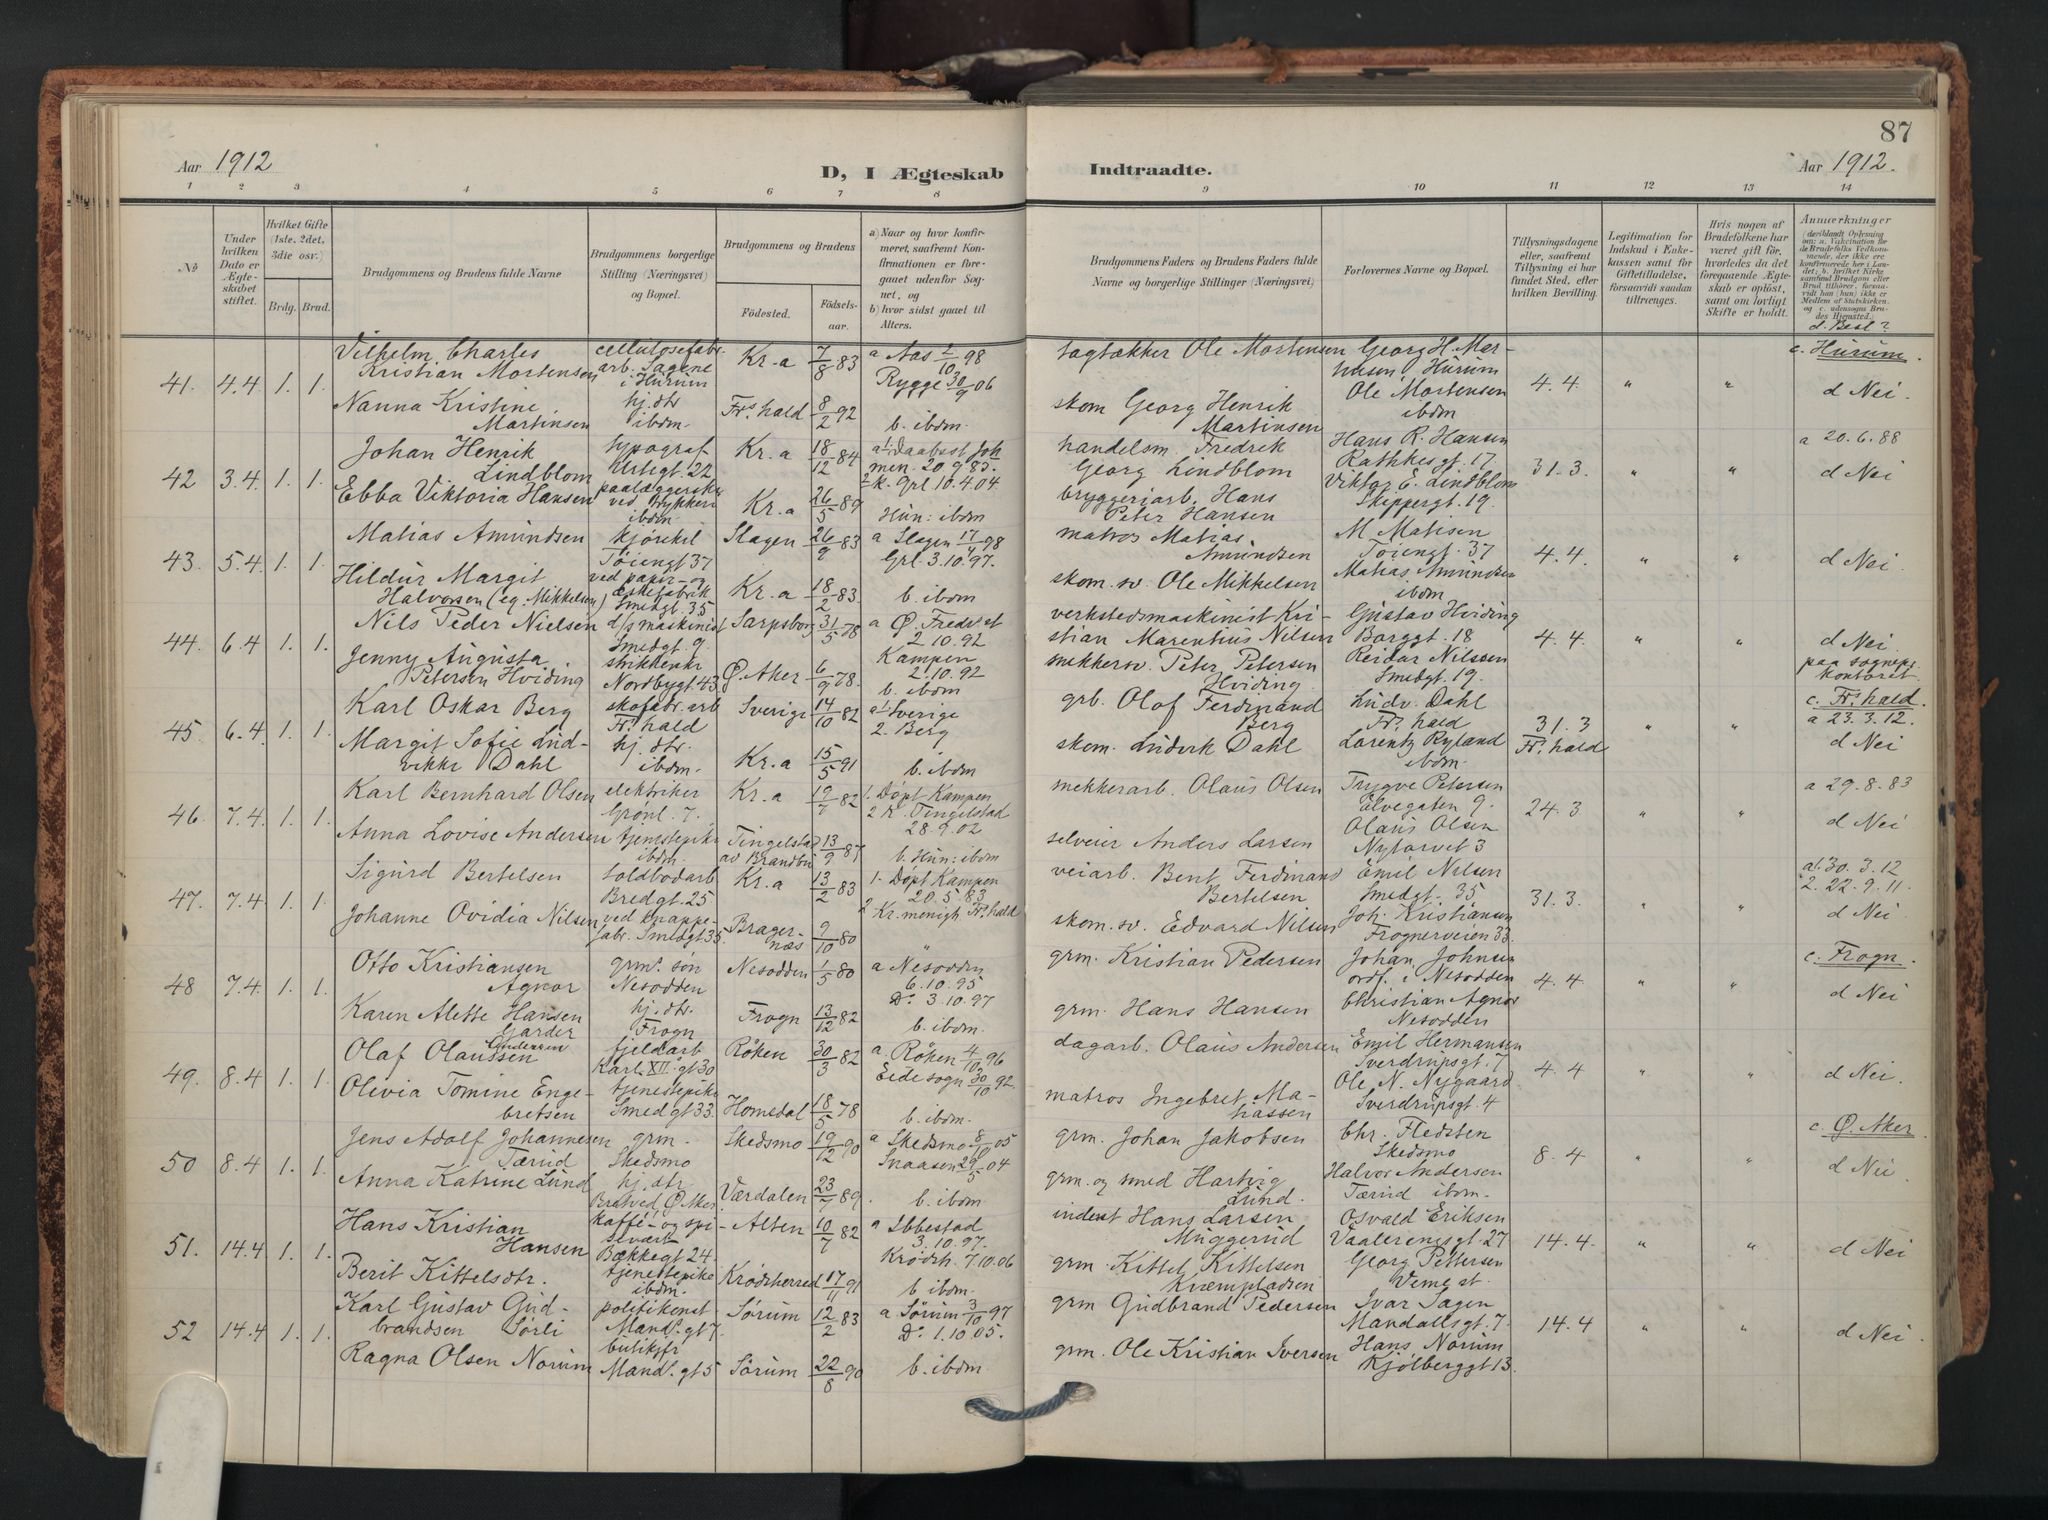 87
Aar 1912
D, I Ægteskab
Indtraadte.
Aar 1912.
1 2 3 4 5 6 7 8 9 10 11 12 13 14
№
Under hvilken Dato er Ægteskabet stiftet.
Hvilket Gifte (1ste, 2det, 3die osv.)
Brdg. Brud.
Brudgommens og Brudens fulde Navne
Brudgommens borgerlige Stilling (Næringsvei) og Bopæl.
Brudgommens og Brudens
Födested.
Födselsaar.
a) Naar og hvor konfirmeret, saafremt Konfirmationen er foregaaet udenfor Sognet, og
b) hvor sidst gaaet til Alters.
Brudgommens Faders og Brudens Faders fulde Navne og borgerlige Stillinger (Næringsvei)
Forlovernes Navne og Bopæl.
Tillysningsdagene eller, saafremt Tillysning ei har fundet Sted, efter hvilken Bevilling.
Legitimation for Indskud i Enkekassen samt for Giftetilladelse, forsaavidt saadan tiltrænges.
Hvis nogen af Brudefolkene har været gift før, hvorledes da det foregaaende Ægteskab er oplöst, samt om lovligt Skifte er holdt.
Anmærkninger
(deriblandt Oplysning om: a. Vakcination for de Brudefolks Vedkommende, der ikke ere konfirmerede her i Landet; b. hvilket Kirkesamfund Brudgom eller Brud tilhörer, forsaavidt han (hun) ikke er Medlem af Statskirken og c. udensogns Brudes Hjemsted.
d. Besl?
41. 4.4 1. 1.
Vilhelm Charles Kristian Mortensen
cellulosefabr. arb. Tagene i Hurum
Kr.a 7/8 83
a Aas 2/10 98
Rygge 30/9 06
tagtækker Ole Mortensen
Georg H. Martinsen, Hurum
Ole Mortensen ibdm
4.4 " "
c. Hurum.
d Nei.
Nanna Kristine Martinsen
hj. dtr ibdm.
Frs.hald 8/2 92
b. ibdm.
skom Georg Henrik Martinsen
42 3.4. 1. 1.
Johan Henrik Lindblom
typograf
Kr.a 18/12 84
men. 20.9.85.
2 k. Grl 10.4.04
handelsm Fredrik Georg Lindblom
Hans R. Hansen
Rathkesgt. 17
Viktor E. Lindblom
Skippergt. 19.
31.3. " "
a 20.6.88
d Nei
Ebba Viktoria Hansen
paalæggerske ved trykkeri ibdm.
Kr.a 26/5 89
Hun: ibdm
bryggeriarb. Hans Peter Hansen
43. 5.4. 1. 1
Matias Amundsen
kjøreksl
Tøiengt 37
Slagen 26/9 83
a Slagen 17/4 98
Grl. 3.10.97.
matros Matias Amundsen
M. Matisen
Tøiengt. 37
Matias Amundsen ibdm
4.4 " "
d Nei
Hildur Margit Halvorsen (eg. Mikkelsen)
ved papir- og æskefabrik
Smedgt. 35
Kr.a 18/2 83.
b. ibdm
skom. sv. Ole Mikkelsen
44. 6.4 1. 1.
Nils Peder Nielsen
d/s maskinist
Smedgt 9.
Sarpsborg 31/5 78
a Ø. Fredr.st
2.10.92
verkstedsmaskinist Kristian Marentius Nilsen
Gustav Hviding
Borggt. 18
Reidar Nilssen
Smedgt. 19.
4.4. " "
d Nei.
paa sognepr. kontoret.
Jenny Augusta Petersen Hviding
strikkenkr
Nordbygt 43
Ø. Aker 6/9 78.
Kampen
2.10.92
b. ibdm
snekkersv. Peter Petersen Hviding
45. 6.4. 1. 1
Karl Oskar Berg
skofabr. arb
Frs. hald
Sverige 14/10 82
a 1 Sverige
2. Berg
grb. Olaf Ferdinand Berg
Ludv. Dahl
Frs. hald
Lorentz Ryland ibdm.
31.3
Frs. hald
" "
c. Frs. hald
a 23.3.12.
d Nei
Margit Sofie Ludvikke Dahl
hj. dtr. ibdm.
Kr.a 15/5 91
b. ibdm
skom. Ludvik Dahl
46. 7.4. 1. 1.
Karl Bernhard Olsen
elektriker
Grønl. 7.
Kr.a 19/7 82
1. Døpt Kampen
2 K. Tingelstad
28.9.02
snekkerarb. Olaus Olsen
Trygve Petersen
Elvegaten 9.
Olaus Olsen
Nytorvet 3
24.3 " "
a 29.8.83
d Nei
Anna Lovise Andersen
tjenestepike ibdm.
Tingelstad av Brandbu 13/9 87
b. Hun: ibdm
selveier Anders Larsen
47. 7.4. 1. 1.
Sigurd Bertelsen
toldbodarb
Bredgt. 25
Kr.a 13/2 83
1. Døpt Kampen
20.5.83
2 Kr. menigh. Frs. hald
veiarb. Bent Ferdinand Bertelsen
Emil Nilsen
Smedgt. 35
Joh. Kristiansen
Frognerveien 33.
31.3. " "
a1. 30.3.12
2. 22.9.11.
d Nei
Johanne Ovidia Nilsen
ved knappefabr. Smedgt 35.
Bragernæs 9/10 80
"
skom. sv. Edvard Nilsen
48 7.4. 1. 1.
Otto Kristiansen Agnor
grms. søn
Nesodden
Nesodden 1/5 80
a Nesodden
6.10.95
Do. 3.10.97
grm. Kristian Pedersen
Johan Johnsen
ordf. i Nesodden
Christian Agnor
Nesodden
4.4 " "
c. Frogn.
d Nei
Karen Alette Hansen Garder
hj. dtr.
Frogn
Frogn 13/12 82
b. ibdm.
grm. Hans Hansen
49. 8.4 1. 1.
Olaf Olaussen Andersen
fjeldarb
Karl XII. gt 30
Røken 30/3 82
a. Røken 4/10 96
Eide sogn 30/10 92
dagarb. Olaus Andersen
Emil Hermansen
Sverdrupsgt. 7
Ole N. Nygaard
Sverdrupsgt. 4
4.4 " "
d Nei.
Olivia Tomine Engebretsen
tjenestepike
Smedgt 33.
Homedal 18/5 78
b. ibdm.
matros Ingebret Mathassen
50 8.4 1. 1.
Jens Adolf Johannesen Tærud
grm.
Skedsmo
Skedsmo 19/12 90
a Skedsmo 8/10 05
Snaasen 29/5 04
grm. Johan Jakobsen
Chr. Fledsten
Skedsmo
Halvor Andersen
Tærud ibdm.
8.4 " "
c. Ø. Aker
d Nei
Anna Katrine Lund
hj. dtr
Bratved Ø. Aker
Værdalen 23/7 89.
b. ibdm
grm. og smed Hartvig Lund.
51. 14.4 1. 1.
Hans Kristian Hansen
kaffé- og spisevært
Bækkegt 24.
Alten 10/7 82
a Ibbestad
3.10.97.
Krødsh. 7.10.06
inderst Hans Larsen Muggerud
Osvald Eriksen
Vaalerengsgt. 27
Georg Pettersen
Veme st.
14.4. " "
d Nei
Berit Kittelsdtr.
tjenestepike ibdm.
Krødsherred 17/11 91
b ibdm.
grm. Kittel Kittelsen Kræmpladsen
52 14.4 1. 1.
Karl Gustav Gudbrandsen Sørli
politikonst
Mands. gt 7
Sørum 12/2 83
a Sørum 3/10 97
Do. 1.10.05.
grm Gudbrand Pedersen
Ivar Sagen
Mandallsgt. 7
Hans Norum
Kjølberggt 13.
14.4 " "
d Nei
Ragna Olsen Norum
butikjfr
Mands. gt 5
Sørum 22/8 90
b. ibdm
grm. Ole Kristian Iversen